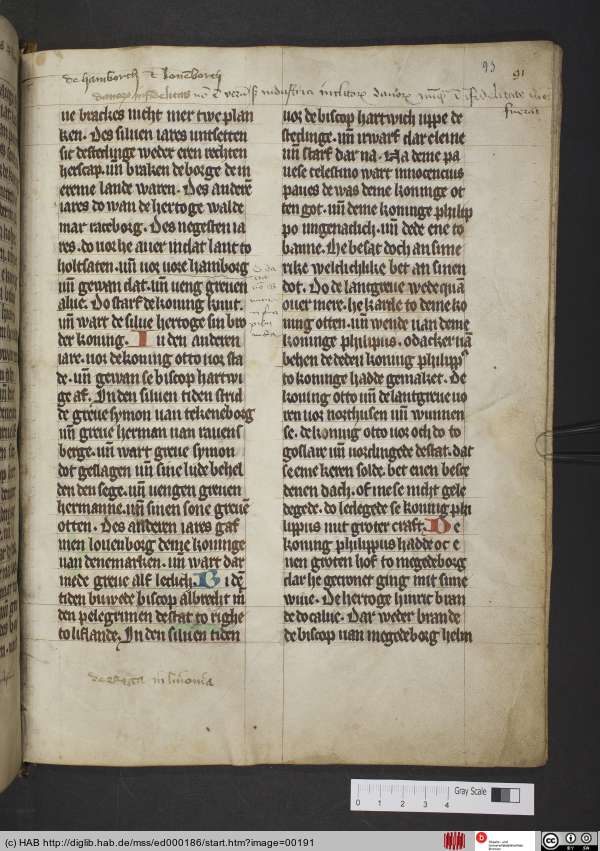 93
91
de hamborch et louenborch
ue brackes nicht mer twe plan
ken. Des siluen iares untsetten
sic de stedinge weder eren rechten
herscap. uñ braken de borge de in
ereme lande waren. Des anderē
iares do wan de hertoge walde
mar raceborg. Des negesten ia
res. do uor he auer in dat lant to
holtsaten. uñ uor uore hamborg
uñ gewan dat. uñ ueng greuen
alue. Do starf de koning knut.
uñ wart de silue hertoge sin bro
der koning. In den anderen
iare. uor de koning otto uor sta
de. uñ gewan se biscop hartwi
ge af. In den siluen tiden strid
de greue symon uan tekeneborg
uñ greue herman uan rauens
berge. uñ wart greue symon
dot geslagen uñ sine lude behel
den den sege. uñ uengen greuen
hermanne. uñ sinen sone greuē
otten. Des anderen iares gaf
men louenborg deme koninge
uan denemarken. uñ wart dar
mede greue alf ledich. Bi dē
tiden buwede biscop albrecht m̄
den pelegrimen de stat to righe
to liflande. In den siluen tiden
uor de biscop hartwich uppe de
stedinge. uñ irwarf dar cleine
uñ starf dar na. Na deme pa
uese celestino wart innocencius
paues de was deme koninge ot
ten got. uñ deme koninge philip
po ungenadich. uñ dede ene to
banne. He besat doch an sime
rike weldichlike bet an sinen
dot. Do de lantgreue wede quā
ouer mere. he karde to deme ko
ning otten. uñ wende uan deme
koninge philippus. odacker uan
behen de dede u koning philipp
to koninge hadde gemaket. De
koning otto uñ de lantgreue uo
ren uor northusen uñ wunnen
se. de koning otto uor och do to
goslare uñ uordingede de stat. dat
se eme keren solde. bet enen besce
denen dach. of me se nicht gele
degede. do ledegede se koning phi
lippus mit groter craft. De
koning philippus hadde oc e
nen groten hof to megedeborg
dar he gecronet ging mit sime
wiue. De hertoge hinric bran
de do calue. Dar weder brande
de biscop uan megedeborg helm
de Riga in liuonia
Gray Scale
0 1 2 3 4
(c) HAB http://diglib.hab.de/mss/ed000186/start.htm?image=00191